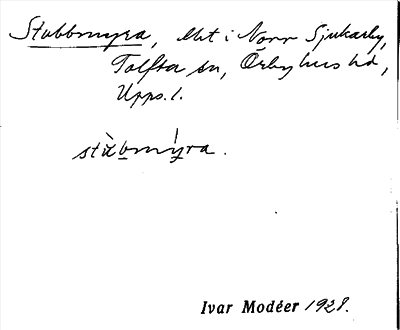 Stubbmyra, Mkt i Norr Sjukarby,
Tolfta sn, Örbyhus hd,
Upps. l.
stùbmýra.
Ivar Modéer 1928.